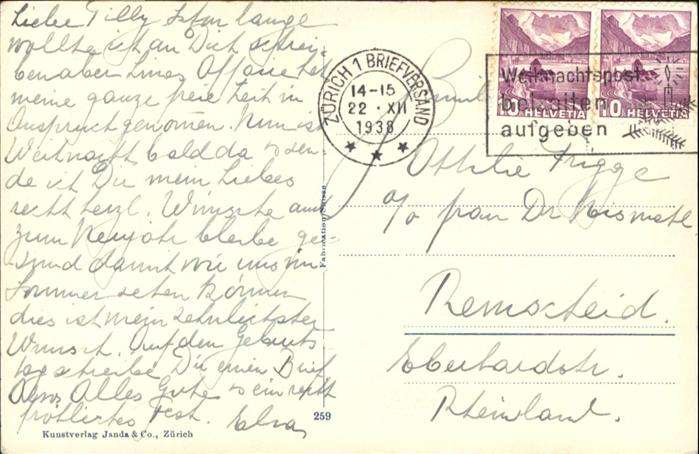 Liebe Tilly schon lange
wollte ich an Dich schrei-
ben aber
meine ganze freie Zeit in
Anspruch genommen. Nun ist
Weihnacht bald da sen-
de ich Dir mein Liebes
recht herzl. Wünsche auch
zum Neujahr bleibe ge-
sund damit wir uns im
Sommer sehen können
dies ist mein sehnlichster
Wunsch. Auf den Geburts-
tag schreibe Dir einen Brief
Also Alles Gute ein recht
fröhliches Fest. Elsa
Kunstverlag Janda & Co., Zürich
259
Fabrication Suisse
ZÜRICH 1 BRIEFVERSAND
14-15
22·XII
1938
Weihnachtspost
beizeiten
aufgeben
10 HELVETIA
10 HELVETIA
Ottilie
c/o Frau Dr
Remscheid.
Eberhardstr.
Rheinland.